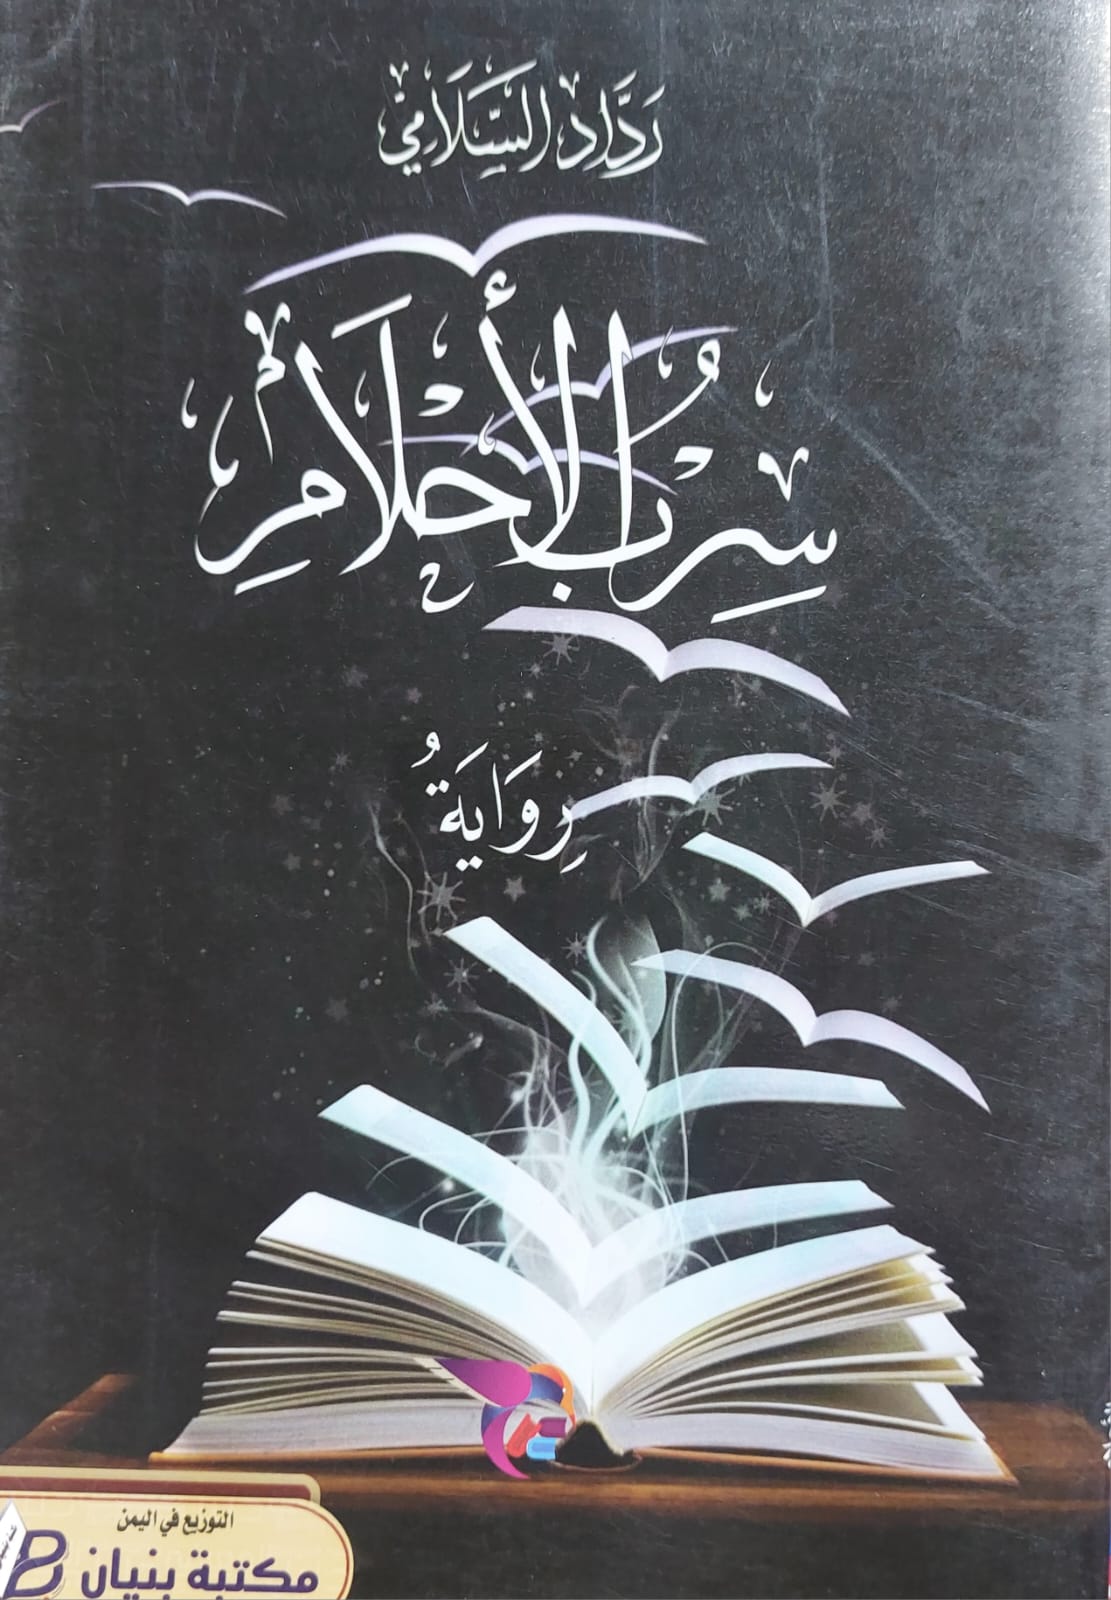 رَدَّادُ السَّلَامِيُّ
سِرْبُ الْأَحْلَامِ
رِوَايَةٌ
التوزيع في اليمن
مكتبة بنيان